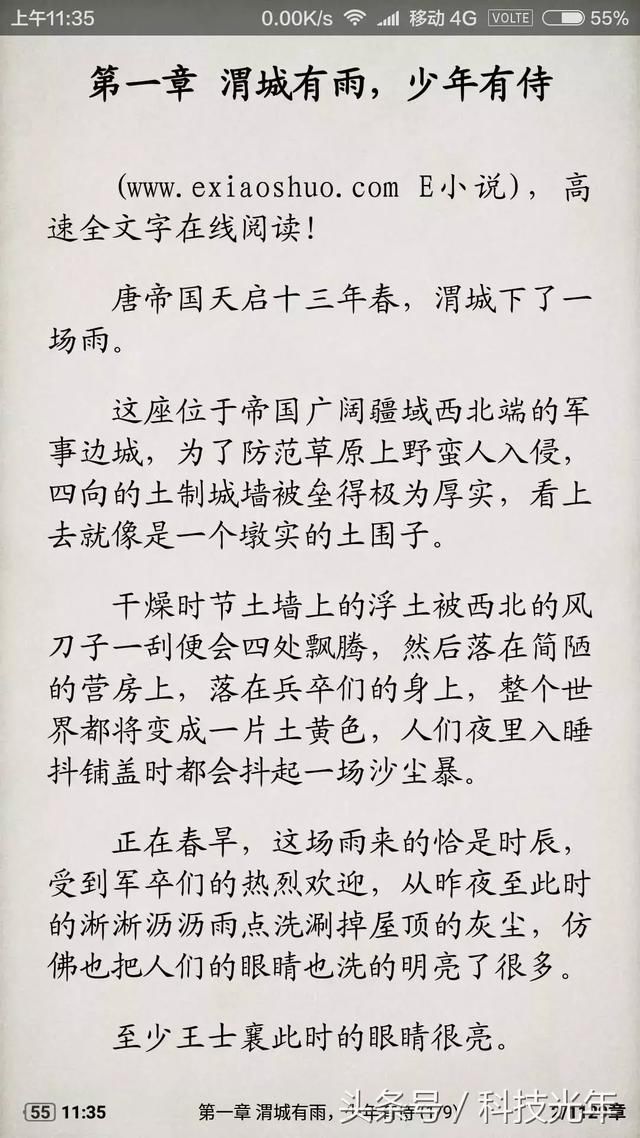 上午11:35 0.00K/s 移动 4G VOLTE 55%
第一章 渭城有雨，少年有侍
(www.exiaoshuo.com E小说)，高
速全文字在线阅读！
唐帝国天启十三年春，渭城下了一
场雨。
这座位于帝国广阔疆域西北端的军
事边城，为了防范草原上野蛮人入侵，
四向的土制城墙被垒得极为厚实，看上
去就像是一个墩实的土围子。
干燥时节土墙上的浮土被西北的风
刀子一刮便会四处飘腾，然后落在简陋
的营房上，落在兵卒们的身上，整个世
界都将变成一片土黄色，人们夜里入睡
抖铺盖时都会抖起一场沙尘暴。
正在春旱，这场雨来的恰是时辰，
受到军卒们的热烈欢迎，从昨夜至此时
的淅淅沥沥雨点洗涮掉屋顶的灰尘，仿
佛也把人们的眼睛也洗的明亮了很多。
至少王士襄此时的眼睛很亮。
55 11:35 第一章 渭城有雨，少年有侍(1/9)
头条号 / 科技光年